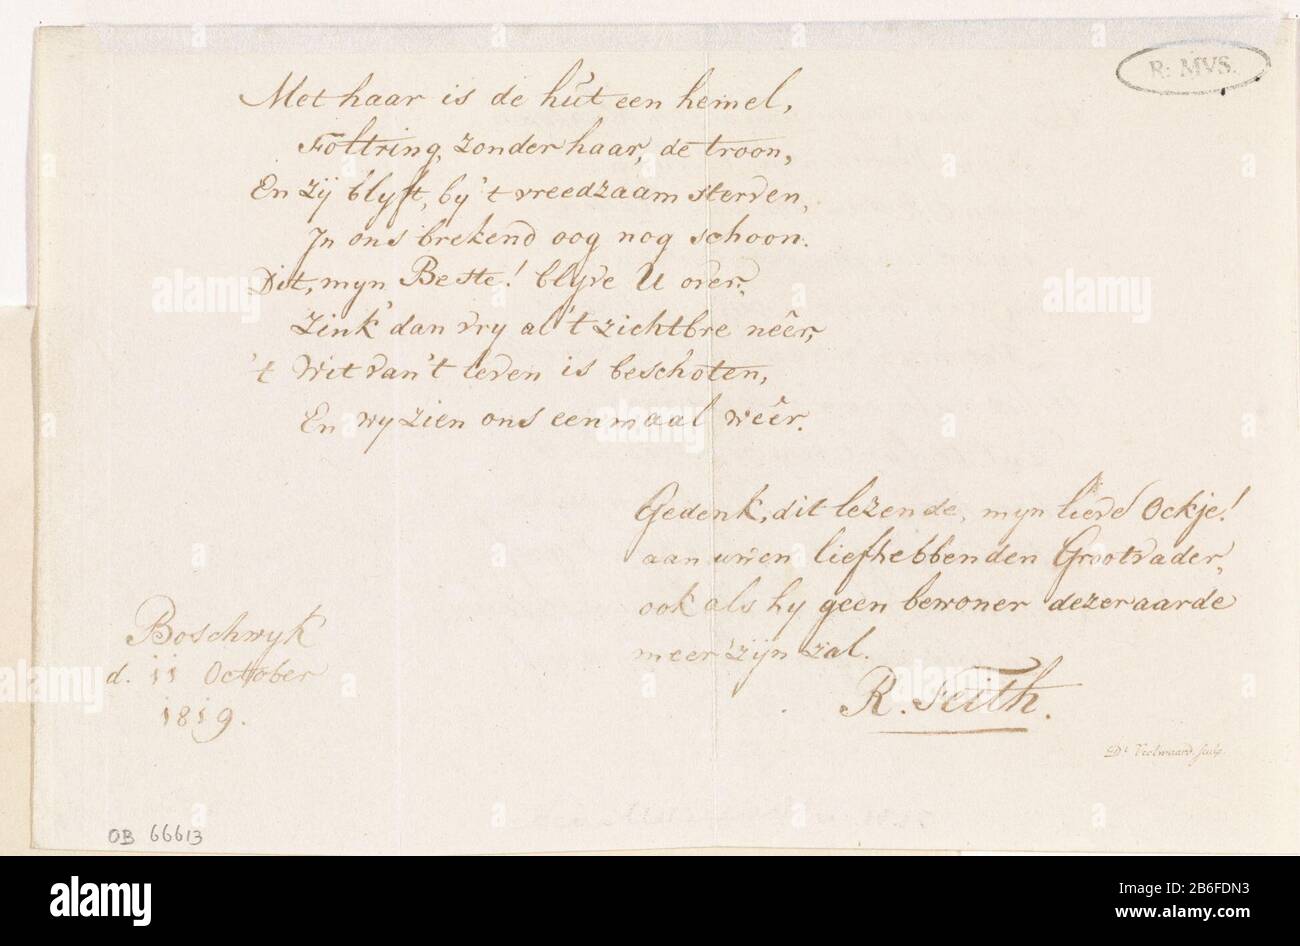 R: MVS.
Met haar is de hut een hemel,
Foltring, zonder haar, de troon,
En zij blyft, by 't vreedzaam sterven,
In ons brekend oog nog schoon.
Dit, myn Beste! blyve U over;
Zink' dan vry al 't zichtbre neêr,
't Wit van 't leven is beschoten,
En wy zien ons eenmaal wêêr.
Gedenk, dit lezende, myn lieve Ockje!
aan uwen liefhebbenden Grootvader,
ook als hy geen bewoner dezer aarde
meer zijn zal.
R. Feith.
Boschwyk
d. 11 October
1819.
Dl Veelwaard. sculp.
OB 66613
alamy
Image ID: 2B6FDN3
www.alamy.com